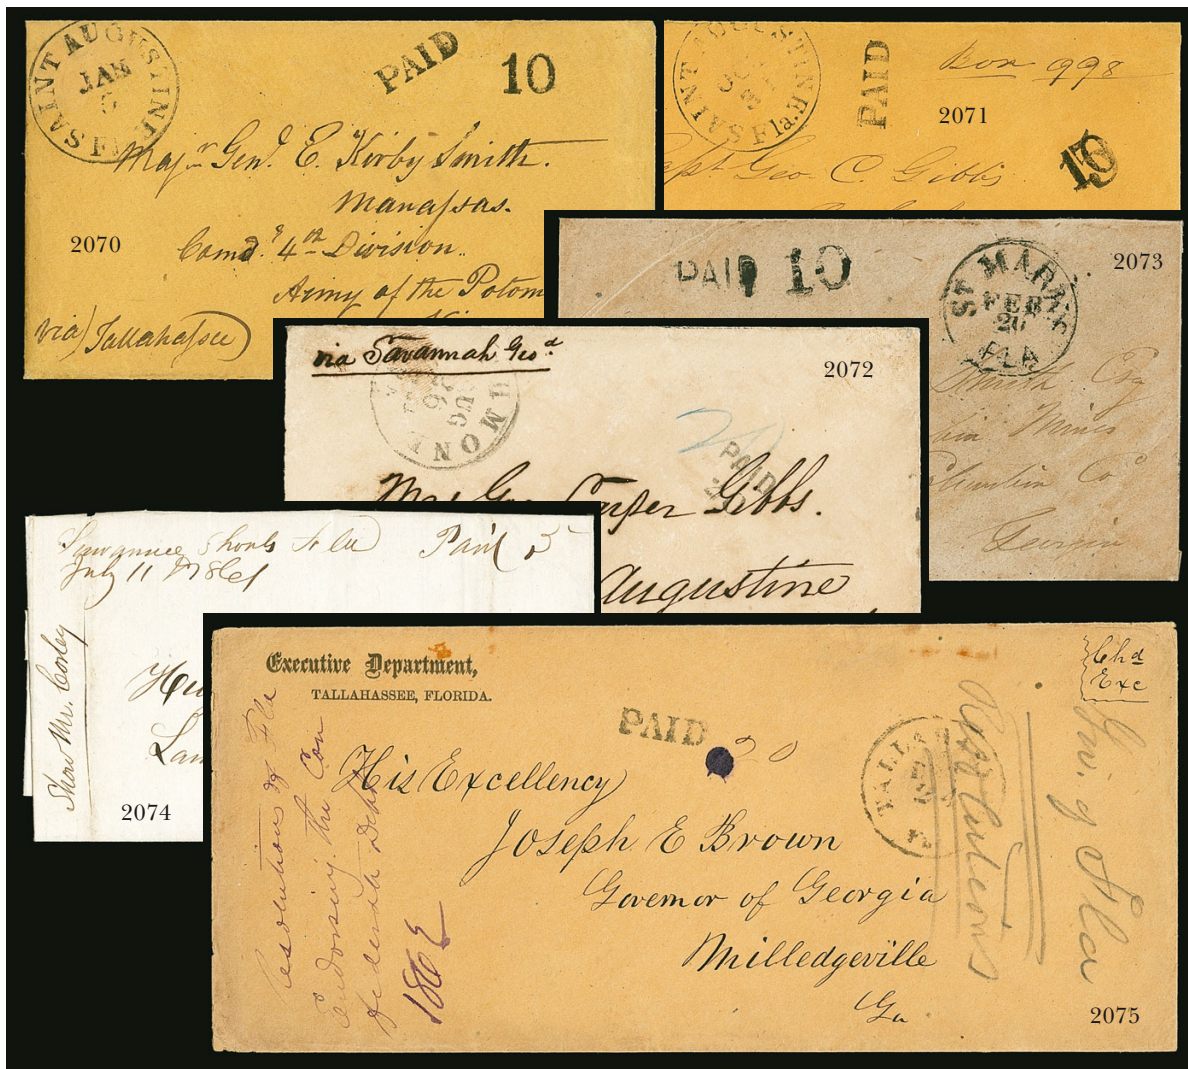 SAINT AUGUSTINE
JAN
5
PAID
10
Majr. Genl. E. Kirby Smith.
Manassas.
Comdg. 4th Division.
Army of the Potom
via Tallahassee
2070
SAINT AUGUSTINE
Fla.
PAID
Box 998
2071
Capt Geo. C. Gibbs
PAID 10
ST. MARKS
FEB
20
FLA
2073
Smith Esq
Mines
Columbia Co
Georgia
via Savannah Geo
2072
AUG
PAID
Mrs Geo Couper Gibbs.
Augustine
Suwannee Shoals Fla Paid 5
July 11 1861
Show Mr. Corley
2074
Executive Department,
TALLAHASSEE, FLORIDA.
PAID
20
Chd
Exc
TALLA
His Excellency
Joseph E Brown
Governor of Georgia
Milledgeville
Ga
Resolutions of Fla
Endorsing the Con
federate Debt
1862
Resolutions
Gov. of Fla
2075